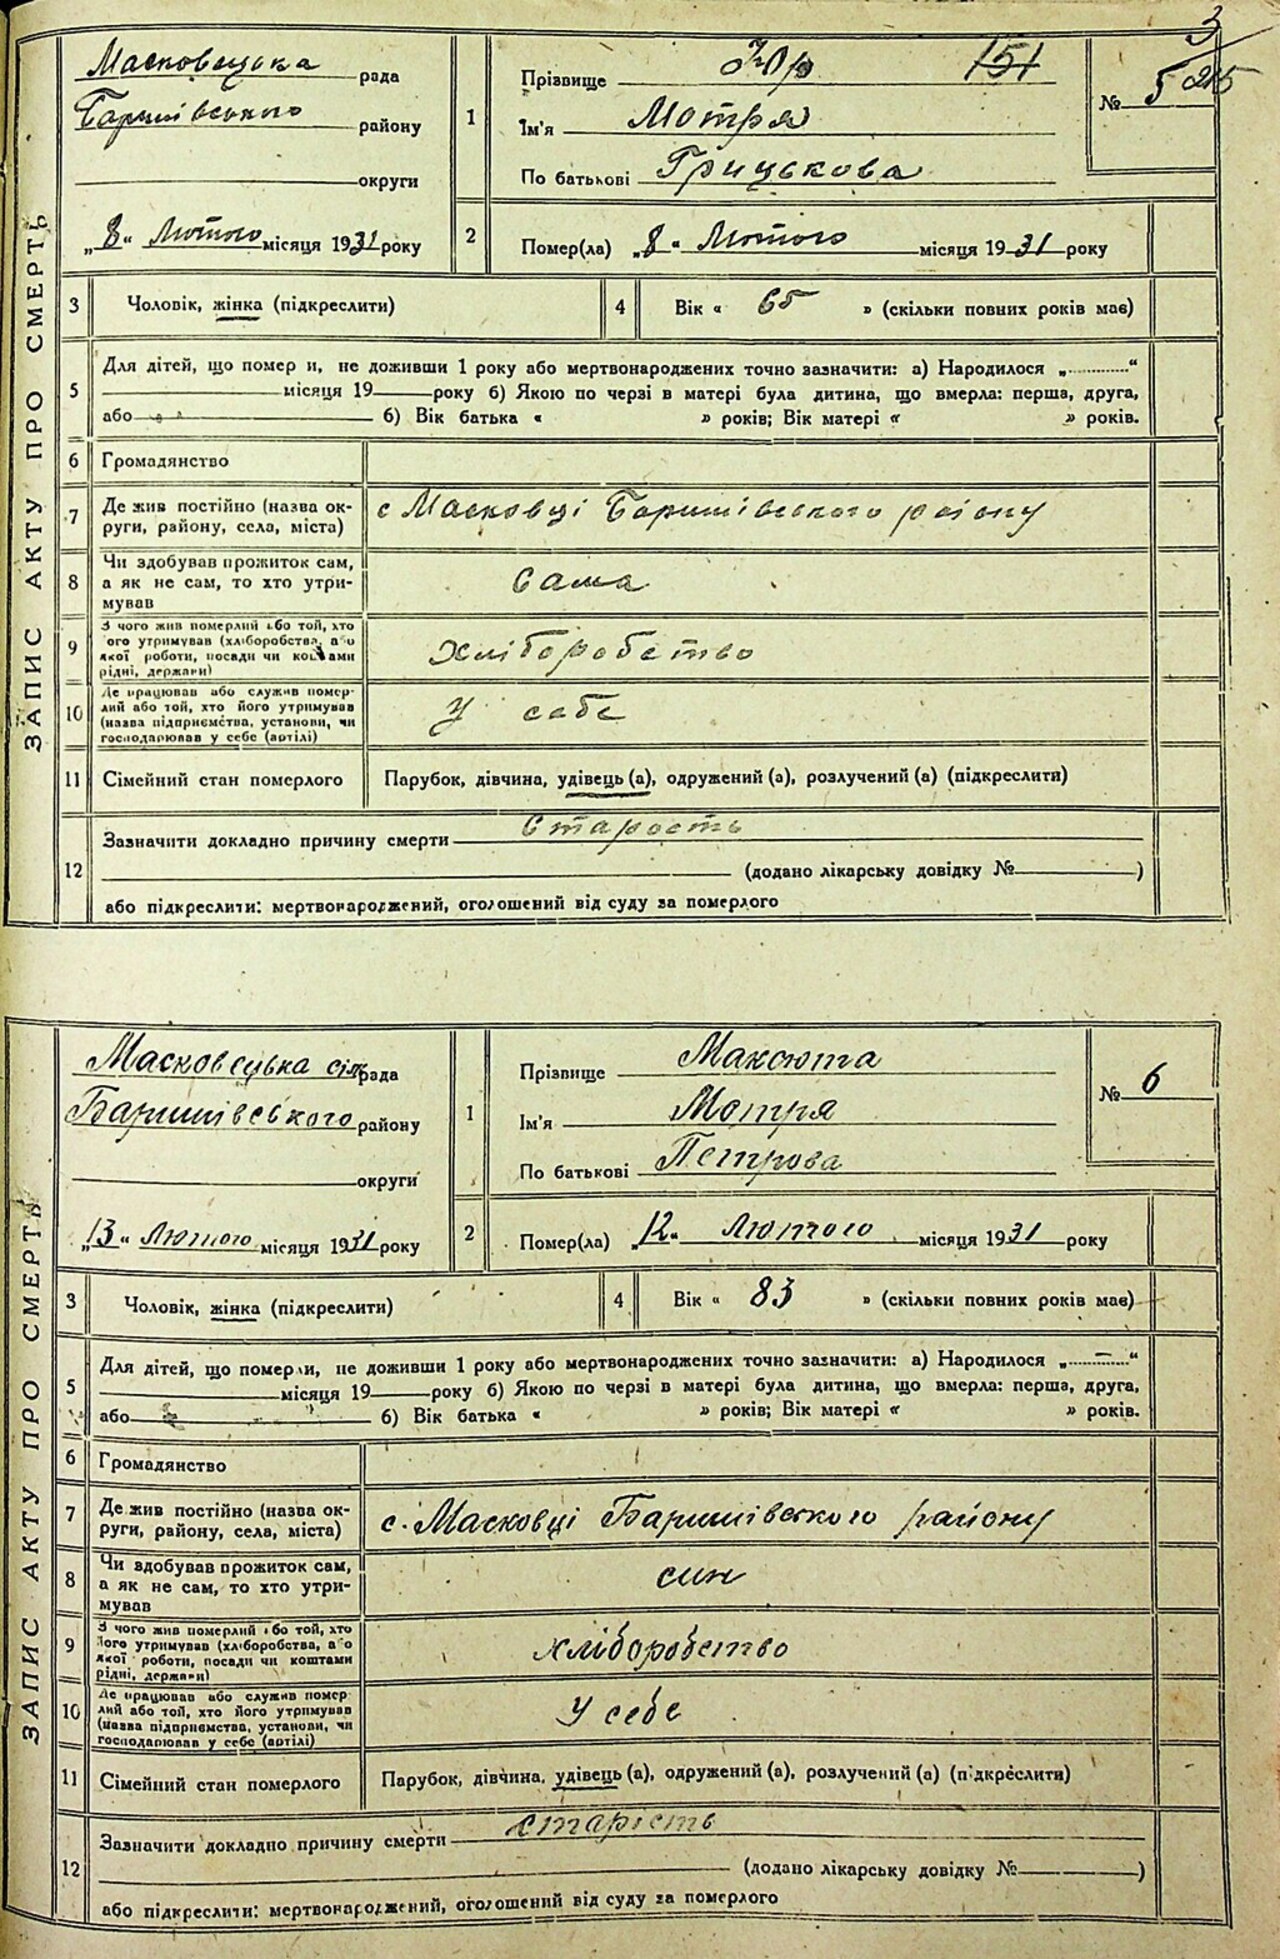 3
215
ЗАПИС АКТУ ПРО СМЕРТЬ
Масковецька рада
Баришівського району
округи
„8“ Лютого місяця 1931 року
1
Прізвище 151
Ім'я Мотря
По батькові Грицькова
№ 5
2 Помер(ла) „8“ Лютого місяця 1931 року
3 Чоловік, жінка (підкреслити)
4 Вік « 65 » (скільки повних років має)
5 Для дітей, що помер и, не доживши 1 року або мертвонароджених точно зазначити: а) Народилося „ “
місяця 19 року б) Якою по черзі в матері була дитина, що вмерла: перша, друга,
або б) Вік батька « » років; Вік матері « » років.
6 Громадянство
7 Де жив постійно (назва ок-
руги, району, села, міста) с Масковці Баришівського району
8 Чи здобував прожиток сам,
а як не сам, то хто утри-
мував Сама
9 З чого жив померлий або той, хто
ого утримував (хліборобства, або
якої роботи, посади чи коштами
рідні, держави) Хліборобство
10 Де працював або служив помер-
лий або той, хто його утримував
(назва підприємства, установи, чи
господарював у себе (артілі) У себе
11 Сімейний стан померлого Парубок, дівчина, удівець (а), одружений (а), розлучений (а) (підкреслити)
12 Зазначити докладно причину смерти Старость
(додано лікарську довідку № )
або підкреслити: мертвонароджений, оголошений від суду за померлого
ЗАПИС АКТУ ПРО СМЕРТЬ
Масковецька сіл рада
Баришівського району
округи
„13“ Лютого місяця 1931 року
1
Прізвище Максюта
Ім'я Мотря
По батькові Петрова
№ 6
2 Помер(ла) „12“ Лютого місяця 1931 року
3 Чоловік, жінка (підкреслити)
4 Вік « 83 » (скільки повних років має)
5 Для дітей, що померли, не доживши 1 року або мертвонароджених точно зазначити: а) Народилося „ “
місяця 19 року б) Якою по черзі в матері була дитина, що вмерла: перша, друга,
або б) Вік батька « » років; Вік матері « » років.
6 Громадянство
7 Де жив постійно (назва ок-
руги, району, села, міста) с. Масковці Баришівського району
8 Чи здобував прожиток сам,
а як не сам, то хто утри-
мував син
9 З чого жив померлий або той, хто
його утримував (хліборобства, або
якої роботи, посади чи коштами
рідні, держави) хліборобство
10 Де працював або служив помер
лий або той, хто його утримував
(назва підприємства, установи, чи
господарював у себе (артілі) У себе
11 Сімейний стан померлого Парубок, дівчина, удівець (а), одружений (а), розлучений (а) (підкреслити)
12 Зазначити докладно причину смерти старість
(додано лікарську довідку № )
або підкреслити: мертвонароджений, оголошений від суду за померлого